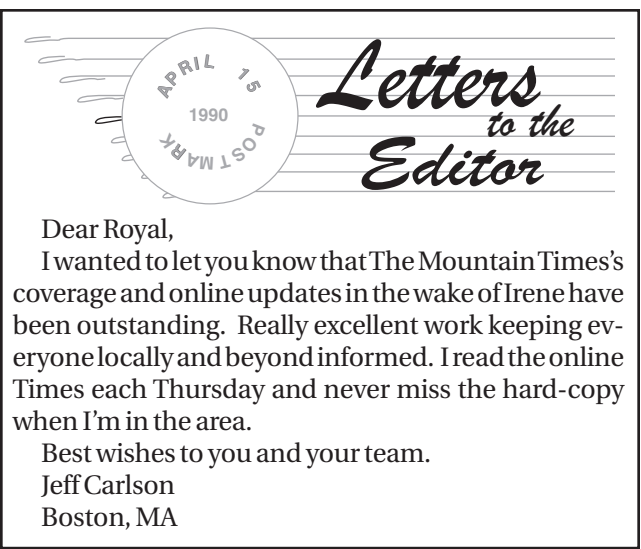 APRIL 15
1990
POSTMARK
Letters
to the
Editor
Dear Royal,
I wanted to let you know that The Mountain Times's
coverage and online updates in the wake of Irene have
been outstanding.  Really excellent work keeping ev-
eryone locally and beyond informed. I read the online
Times each Thursday and never miss the hard-copy
when I'm in the area.
Best wishes to you and your team.
Jeff Carlson
Boston, MA